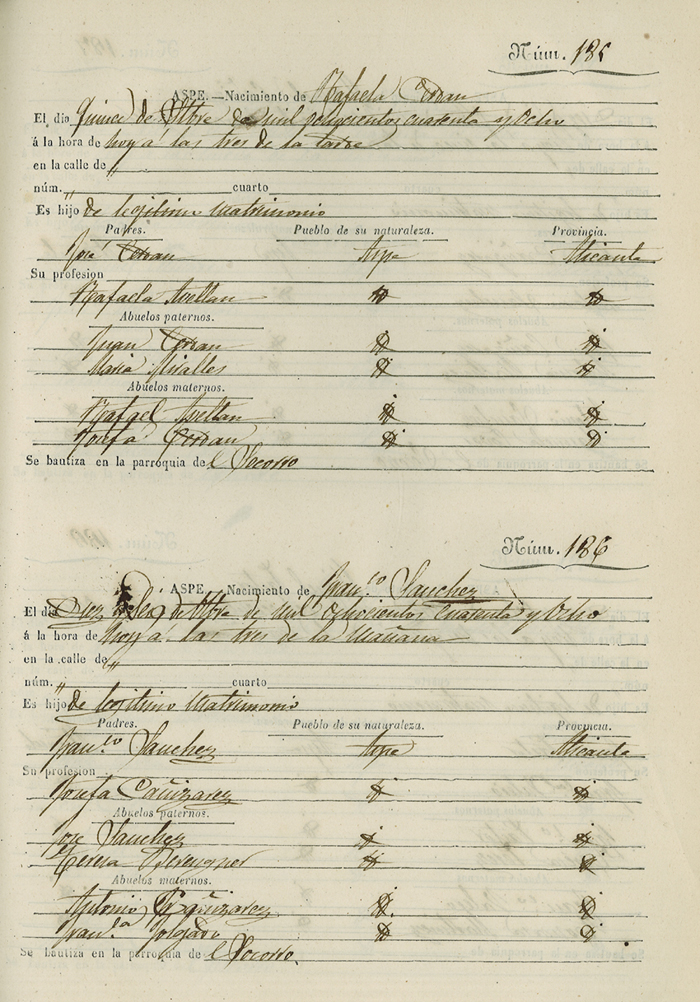 Núm. 185
ASPE.—Nacimiento de Rafaela Cerdan
El dia Quince de 8tbre de mil ochocientos cuarenta y Ocho
á la hora de hoy a las tres de la tarde
en la calle de "
núm. " cuarto
Es hijo de legitimo Matrimonio
Padres. Pueblo de su naturaleza. Provincia.
José Cerdan Aspe Alicante
Su profesion
Rafaela Avellan
Abuelos paternos.
Juan Cerdan
Maria Miralles
Abuelos maternos.
Rafael Avellan
Josefa Cerdan
Se bautiza en la parroquia del Socorro
Núm. 186
ASPE.—Nacimiento de Fran.co Sanchez
El dia Diez y Seis de 8tbre de mil ochocientos cuarenta y Ocho
á la hora de hoy a las tres de la Mañana
en la calle de "
núm. " cuarto
Es hijo de legitimo Matrimonio
Padres. Pueblo de su naturaleza. Provincia.
Fran.co Sanchez Aspe Alicante
Su profesion
Josefa Cañizarez
Abuelos paternos.
José Sanchez
Teresa Berenguer
Abuelos maternos.
Antonio Cañizarez
Fran.ca
Se bautiza en la parroquia del Socorro.